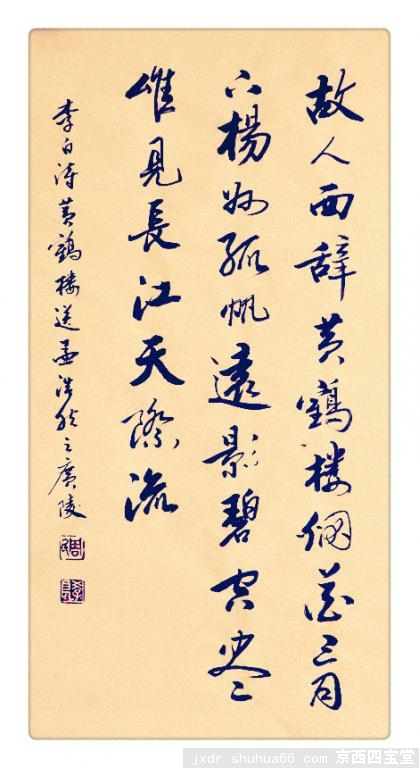 故人西辞黄鶴楼烟花三月
下楊州孤帆遠影碧空尽
唯見長江天際流
李白诗黄鶴楼送孟浩然之廣陵
jxdr.shuhua66.com 京西四宝堂